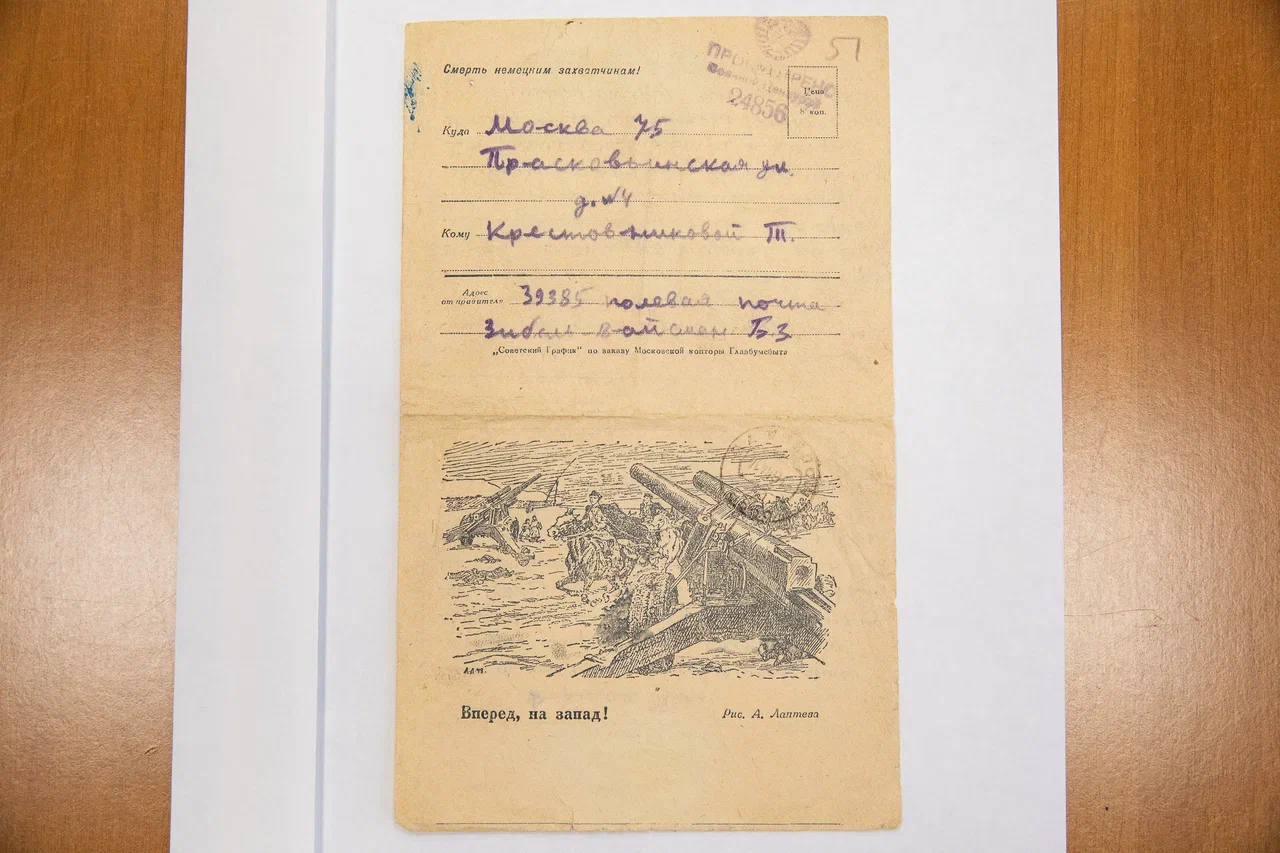 51
Смерть немецким захватчинам!
ПРОСМОТРЕНО
Военной Цензурой
24856
Цена
8 коп.
Куда Москва 75
Прасковьинская ул.
д. №4
Кому Крестовниковой Т.
Адрес отправителя 39385 полевая почта
Б З
„Советский График" по заказу Московской конторы Главбумсбыта
А.Л.
Вперед, на запад!
Рис. А. Лаптева